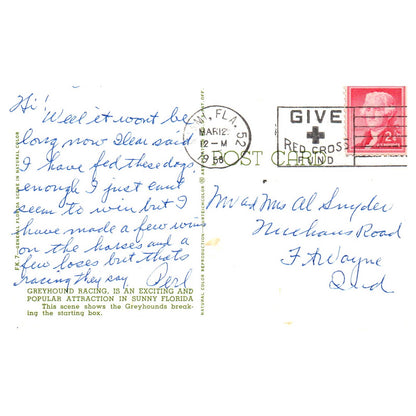 Hi!
Well it wont be
long now Clear said
I have fed these dogs
enough I just cant
seem to win but I
have made a few wins
on the horses and a
few loses but thats
racing they say. Perl
GREYHOUND RACING, IS AN EXCITING AND
POPULAR ATTRACTION IN SUNNY FLORIDA
This scene shows the Greyhounds break-
ing the starting box.
FLA.
MAR 12
12-M
1956
GIVE
RED CROSS
FUND
2¢
POST CARD
Mr and Mrs Al Snyder
Road
Ft Wayne
Ind